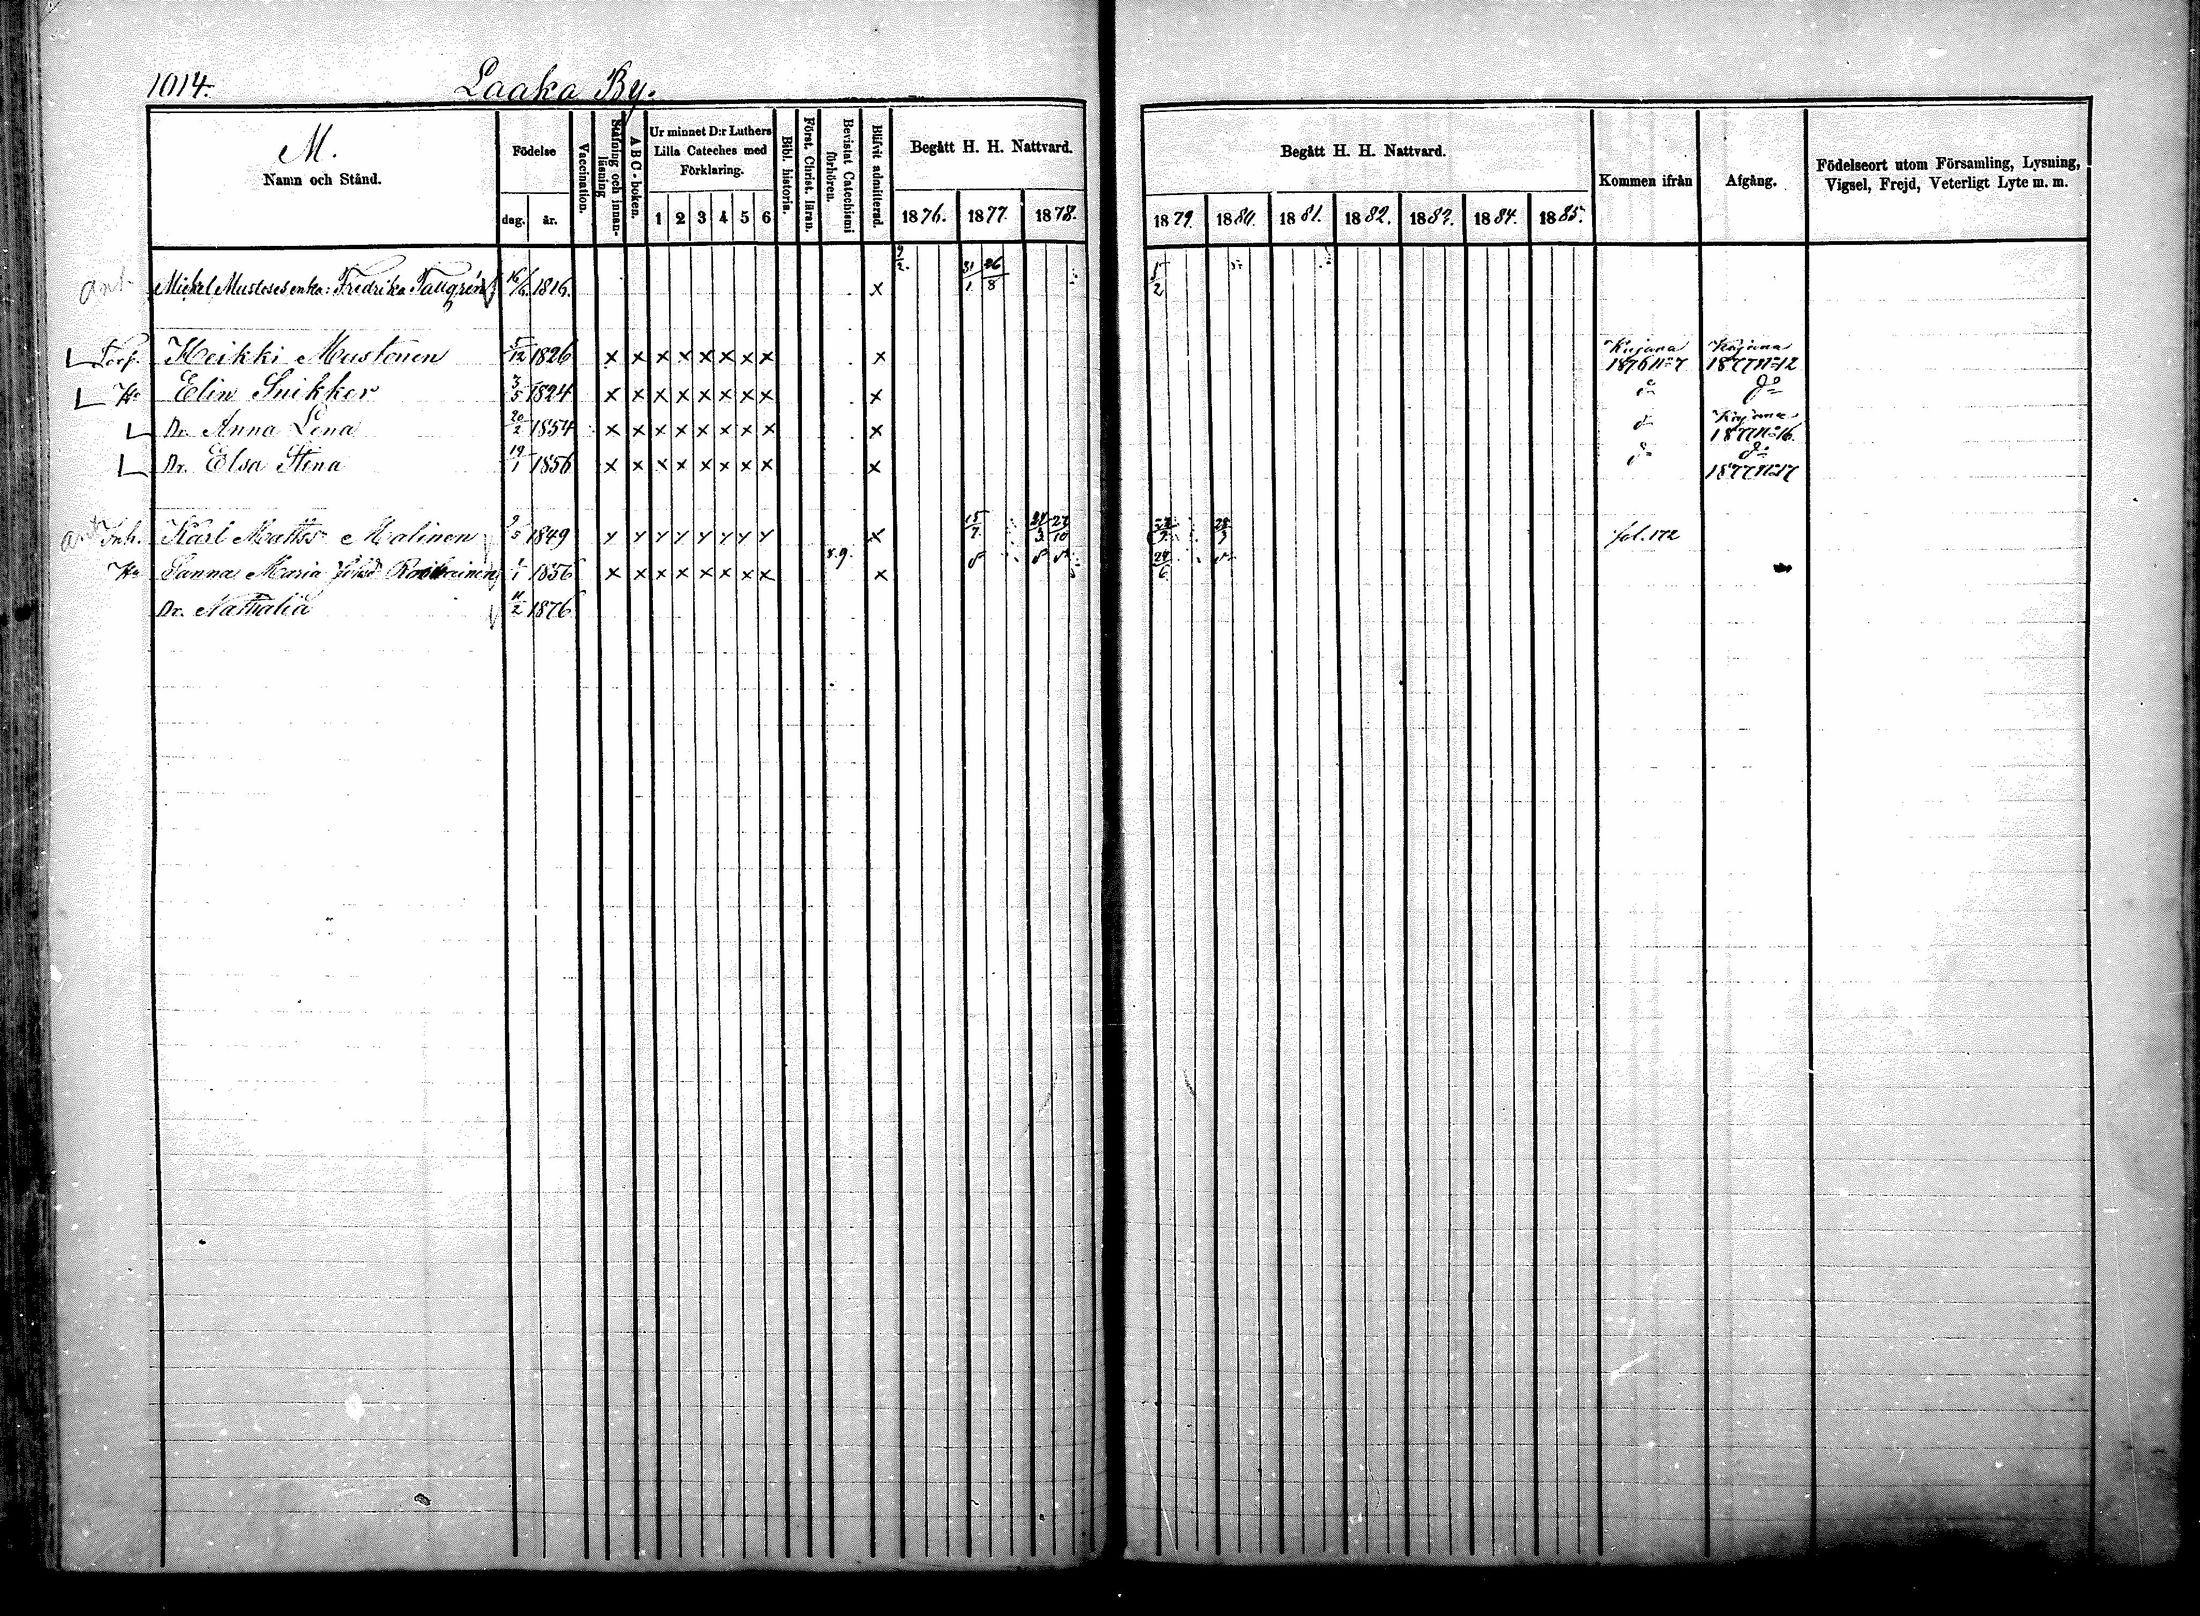 1014.
Laaka By.
M.
Namn och Stånd.
Födelse
dag.
år.
Vaccination.
Stafning och innanläsning
A B C-boken.
Ur minnet D:r Luthers
Lilla Cateches med
Förklaring.
1 2 3 4 5 6
Bibl. historia.
Först. Christ. läran.
Bevistat Catechismi
förhören.
Blifvit admitterad.
Begått H. H. Nattvard.
1876. 1877. 1878.
Begått H. H. Nattvard.
1879. 1880. 1881. 1882. 1883. 1884. 1885.
Kommen ifrån
Afgång.
Födelseort utom Församling, Lysning,
Vigsel, Frejd, Veterligt Lyte m. m.
Mickel Mustoses enka: Fredrika Tallgrén 16/6 1816. x 31/1 26/8
Torp. Heikki Mustonen 5/12 1826 x x x x x x x x x Kajana 1876 No 7 Kajana 1877 No 12
Hu Elin Snikker 3/5 1824 x x x x x x x x x do do
Dr. Anna Lena 20/2 1854 x x x x x x x x x do Kajana 1877 No 16.
Dr. Elsa Stina 19/1 1856 x x x x x x x x x do do 1877 No 17
Inh. Karl Matts Malinen /5 1849 x x x x x x x x x 15/7 fol. 172
Hu Sanna Maria född 1/1 1856 x x x x x x x x x 24/6
Dr. Nathalia 11/2 1876